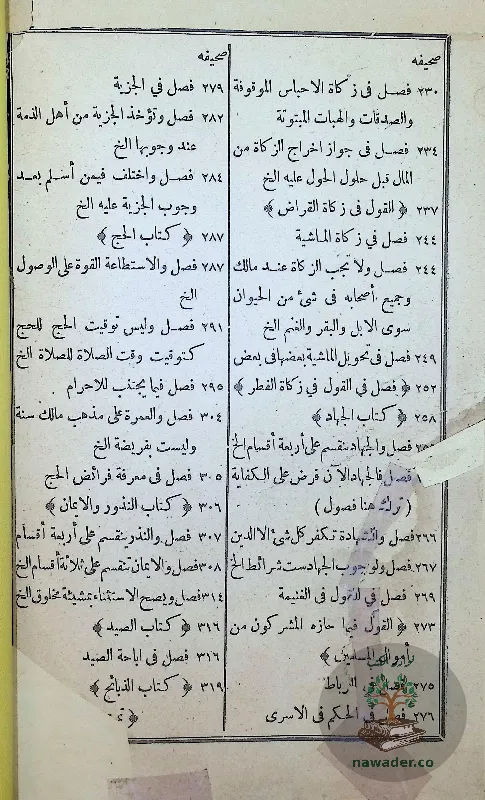 صحيفه
٢٣٠ فصل فى زكاة الاحباس الموقوفة
والصدقات والهبات المبتوتة
٢٣٤ فصل فى جواز اخراج الزكاة من
المال قبل حلول الحول عليه الخ
٢٣٧ ﴿ القول فى زكاة القراض ﴾
٢٤٤ فصل في زكاة الماشية
٢٤٤ فصل ولا تجب الزكاة عند مالك
وجميع أصحابه فى شئ من الحيوان
سوى الابل والبقر والغنم الخ
٢٤٩ فصل فى تحويل الماشية بعضها فى بعض
٢٥٢ ﴿ فصل فى القول فى زكاة الفطر ﴾
٢٥٨ ﴿ كتاب الجهاد ﴾
فصل والجهاد ينقسم على أربعة أقسام الخ
فصل فالجهاد الآن فرض على الكفاية
( ترك هنا فصول )
٢٦٦ فصل والشهادة تكفر كل شئ الا الدين
٢٦٧ فصل ولوجوب الجهاد ست شرائط الخ
٢٦٩ فصل في القول فى الغنيمة
٢٧٣ ﴿ القول فيما حازه المشركون من
أموال المسلمين ﴾
٢٧٥ فصل فى الرباط
٢٧٦ فصل فى الحكم فى الاسرى
صحيفه
٢٧٩ فصل في الجزية
٢٨٢ فصل وتؤخذ الجزية من أهل الذمة
عند وجوبها الخ
٢٨٤ فصل واختلف فيمن أسلم بعد
وجوب الجزية عليه الخ
٢٨٧ ﴿ كتاب الحج ﴾
٢٨٧ فصل والاستطاعة القوة على الوصول
الخ
٢٩١ فصل وليس توقيت الحج للحج
كتوقيت وقت الصلاة للصلاة الخ
٢٩٥ فصل فيما يجتنب للاحرام
٣٠٤ فصل والعمرة على مذهب مالك سنة
وليست بفريضة الخ
٣٠٥ فصل فى معرفة فرائض الحج
٣٠٦ ﴿ كتاب النذور والايمان ﴾
٣٠٧ فصل والنذر ينقسم على أربعة أقسام
٣٠٨ فصل والايمان تنقسم على ثلاثة أقسام الخ
٣١٤ فصل ويصح الاستثناء بمشيئة مخلوق الخ
٣١٦ ﴿ كتاب الصيد ﴾
٣١٦ فصل فى اباحة الصيد
٣١٩ ﴿ كتاب الذبائح ﴾
nawader.co